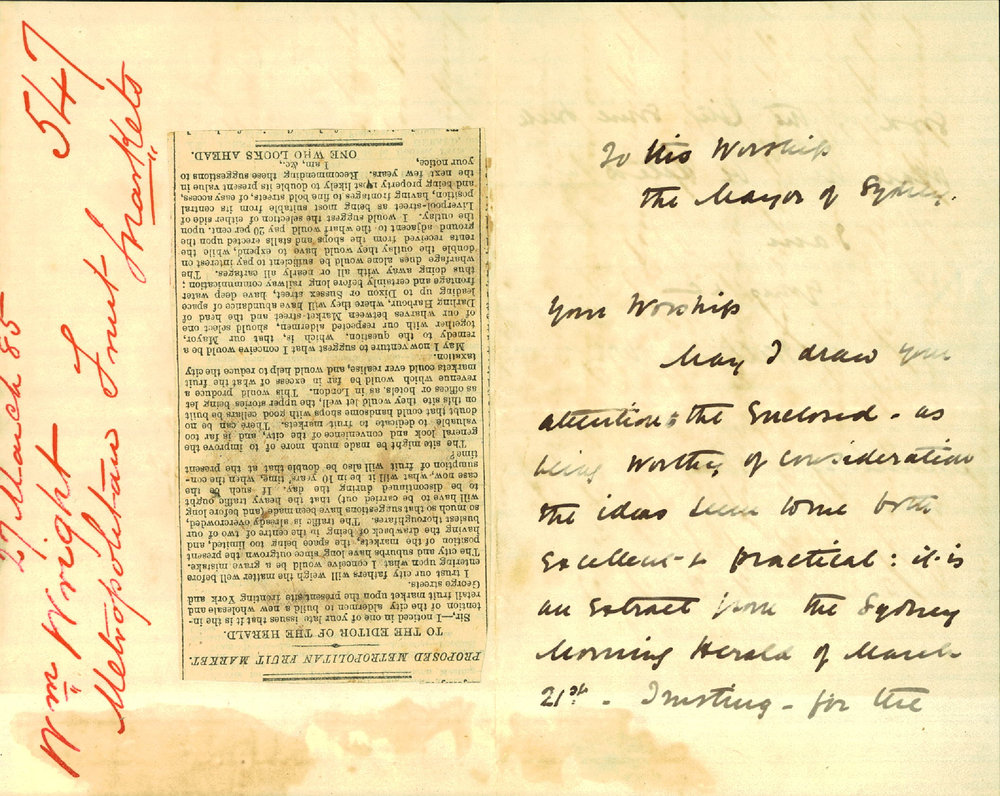 547
27 March 85
Wm Wright
Metropolitan Fruit
Markets
PROPOSED METROPOLITAN FRUIT MARKET.
TO THE EDITOR OF THE HERALD.
Sir,—I noticed in one of your late issues that it is the in-
tention of the city aldermen to build a new wholesale and
retail fruit market upon the present site fronting York and
George streets.
I trust our city fathers will weigh the matter well before
entering upon what I conceive would be a grave mistake.
The city and suburbs have long since outgrown the present
position of the markets, the space being too limited, and
having the drawback of being in the centre of two of our
busiest thoroughfares. The traffic is already overcrowded,
so much so that suggestions have been made (and before long
will have to be carried out) that the heavy traffic ought
to be discontinued during the day. If such be the
case now, what will it be in 10 years' time, when the con-
sumption of fruit will also be double that at the present
time?
The site might be made much more of to improve the
general look and convenience of the city, and is far too
valuable to dedicate to fruit markets. There can be no
doubt that could handsome shops with good cellars be built
on this site they would let well, the upper stories being let
as offices or hotels, as in London. This would produce a
revenue which would be far in excess of what the fruit
markets could ever realise, and would help to reduce the city
taxation.
May I now venture to suggest what I conceive would be a
remedy to the question, which is, that our Mayor,
together with our respected aldermen, should select one
of our wharves between Market-street and the head of
Darling Harbour, where they will have abundance of space
leading up to Dixon or Sussex street, have deep water
frontage and certainly before long railway communication:
thus doing away with all or nearly all cartages. The
wharfage dues alone would be sufficient to pay interest on
double the outlay they would have to expend, while the
rents received from the shops and stalls erected upon the
ground adjacent to the wharf would pay 20 per cent. upon
the outlay. I would suggest the selection of either side of
Liverpool-street as being most suitable from its central
position, having frontages to fine bold streets, of easy access,
and being property most likely to double its present value in
the next few years. Recommending these suggestions to
your notice,
I am, &c.,
ONE WHO LOOKS AHEAD.
To His Worship
the Mayor of Sydney.
Your Worship
May I draw your
attention to the Enclosed - as
being Worthy of Consideration
the ideas seem to me both
Excellent & practical: it is
an Extract from the Sydney
Morning Herald of March
21st - Trusting - for the